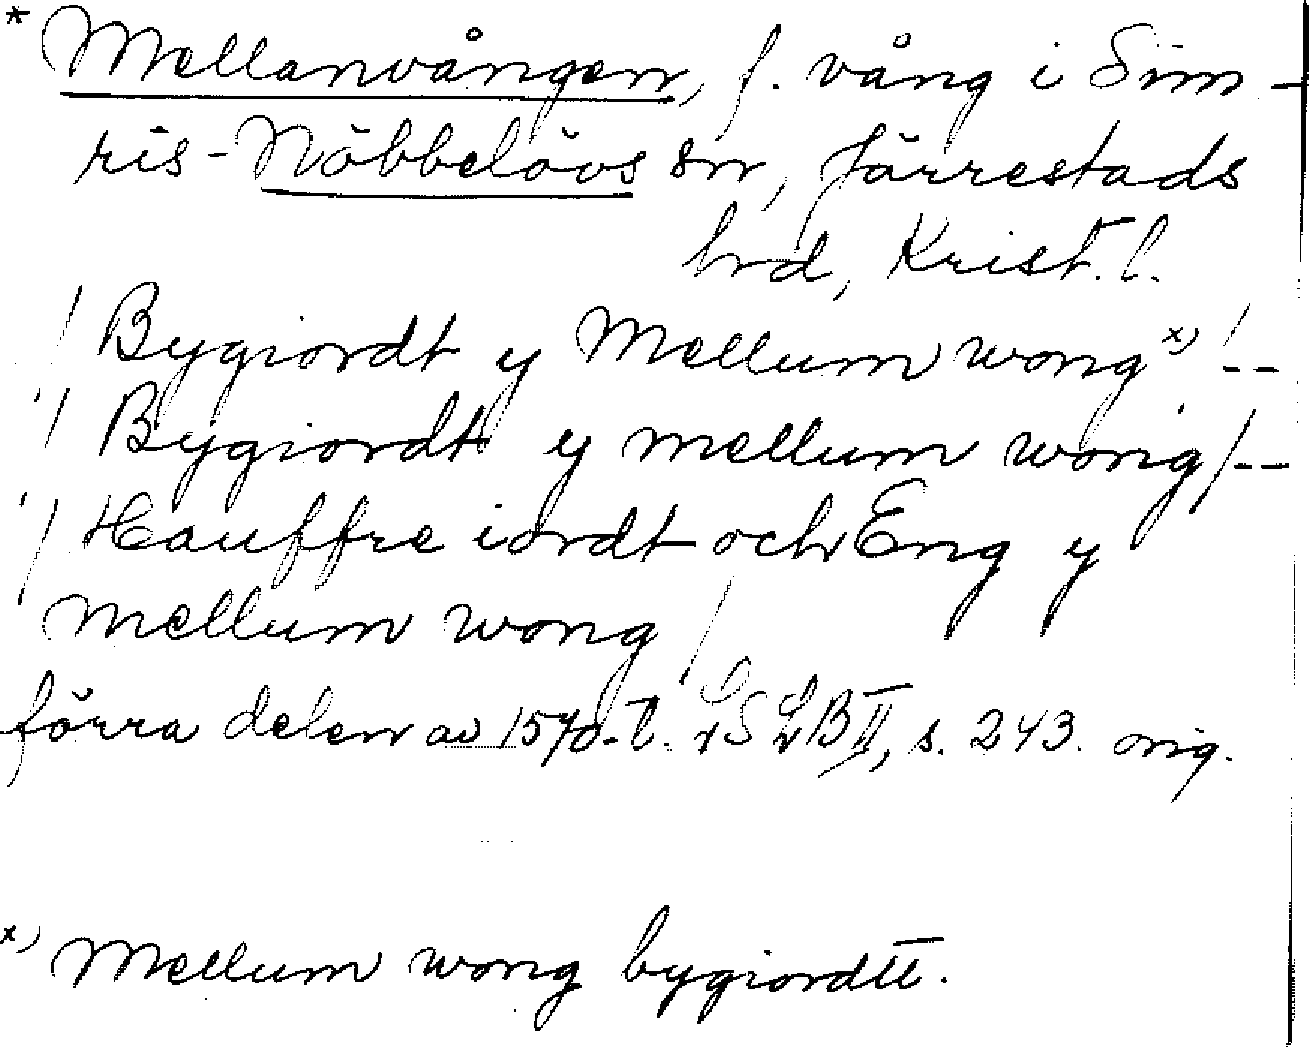 * Mellanvången, f. vång i Sim-
ris-Nöbbelövs sn, Järrestads
hrd, Krist. l.
/ Bygiordt y Mellum wong x) / --
/ Bygiordt y mellum wong / --
/ Hauffre iordt och Eng y
mellum wong /
förra delen av 1570-t. LSLB II, s. 243. orig.
x) Mellum wong bygiordtt.